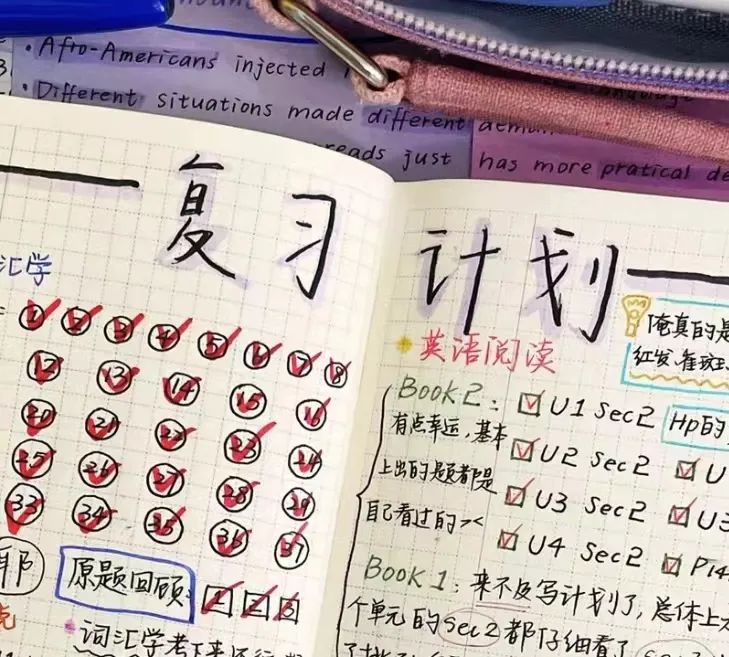 Afro-Americans injected
Different situations made different
reads just has more pratical
复习计划
汇学
① ② ③ ④ ⑤ ⑥ ⑦ ⑧
⑫ ⑬ ⑭ ⑮ ⑯
⑳ ㉑ ㉒ ㉓ ㉔
㉕ ㉖ ㉗ ㉘ ㉙
㉝ ㉞ ㉟ ㊱ ㊲
原题回顾: 1 2 3
词汇学考下来还行
英语阅读
俺真的是
红发、雀斑
Book 2:
有点幸运,基本
上出的题都是
自己看过的><
U1 Sec2 Hp的
U2 Sec2 U
U3 Sec2 U3
U4 Sec2 P14
Book 1: 来不及写计划了,总体上
个单元的Sec2都仔细看了